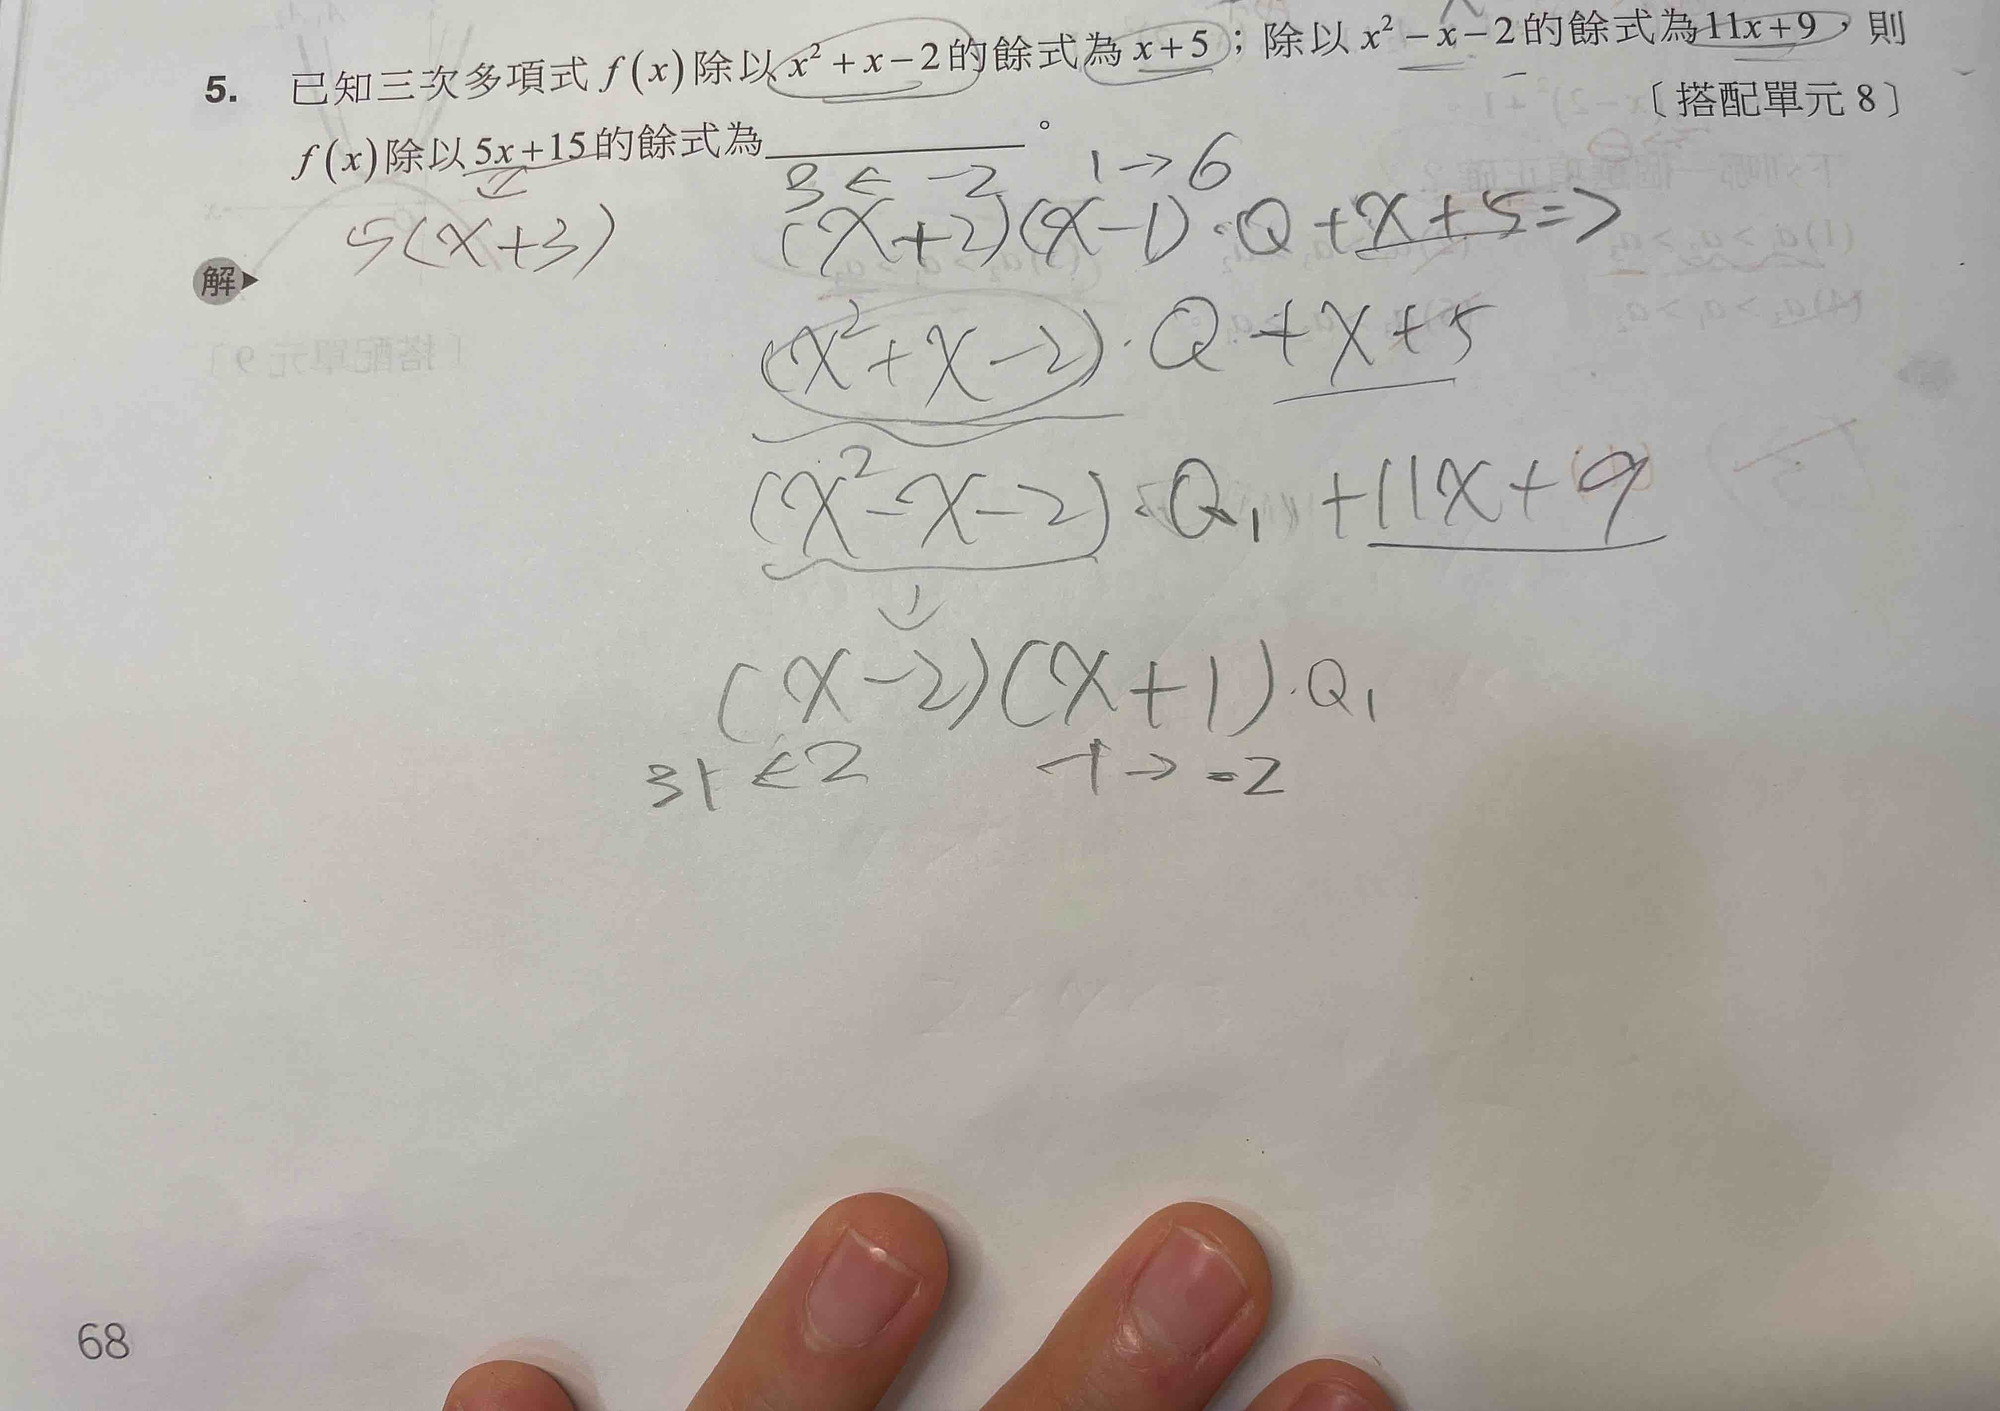 5. 已知三次多項式 f(x) 除以 x²+x−2 的餘式為 x+5；除以 x²−x−2 的餘式為 11x+9，則
f(x) 除以 5x+15 的餘式為________。 〔搭配單元 8〕
3 ← −2   1 → 6
5(x+3)   (x+2)(x−1)·Q+x+5=>
解
(x²+x−2)·Q+x+5
(x²−x−2)·Q₁+11x+9
(x−2)(x+1)·Q₁
31 ← 2   −1 → −2
68